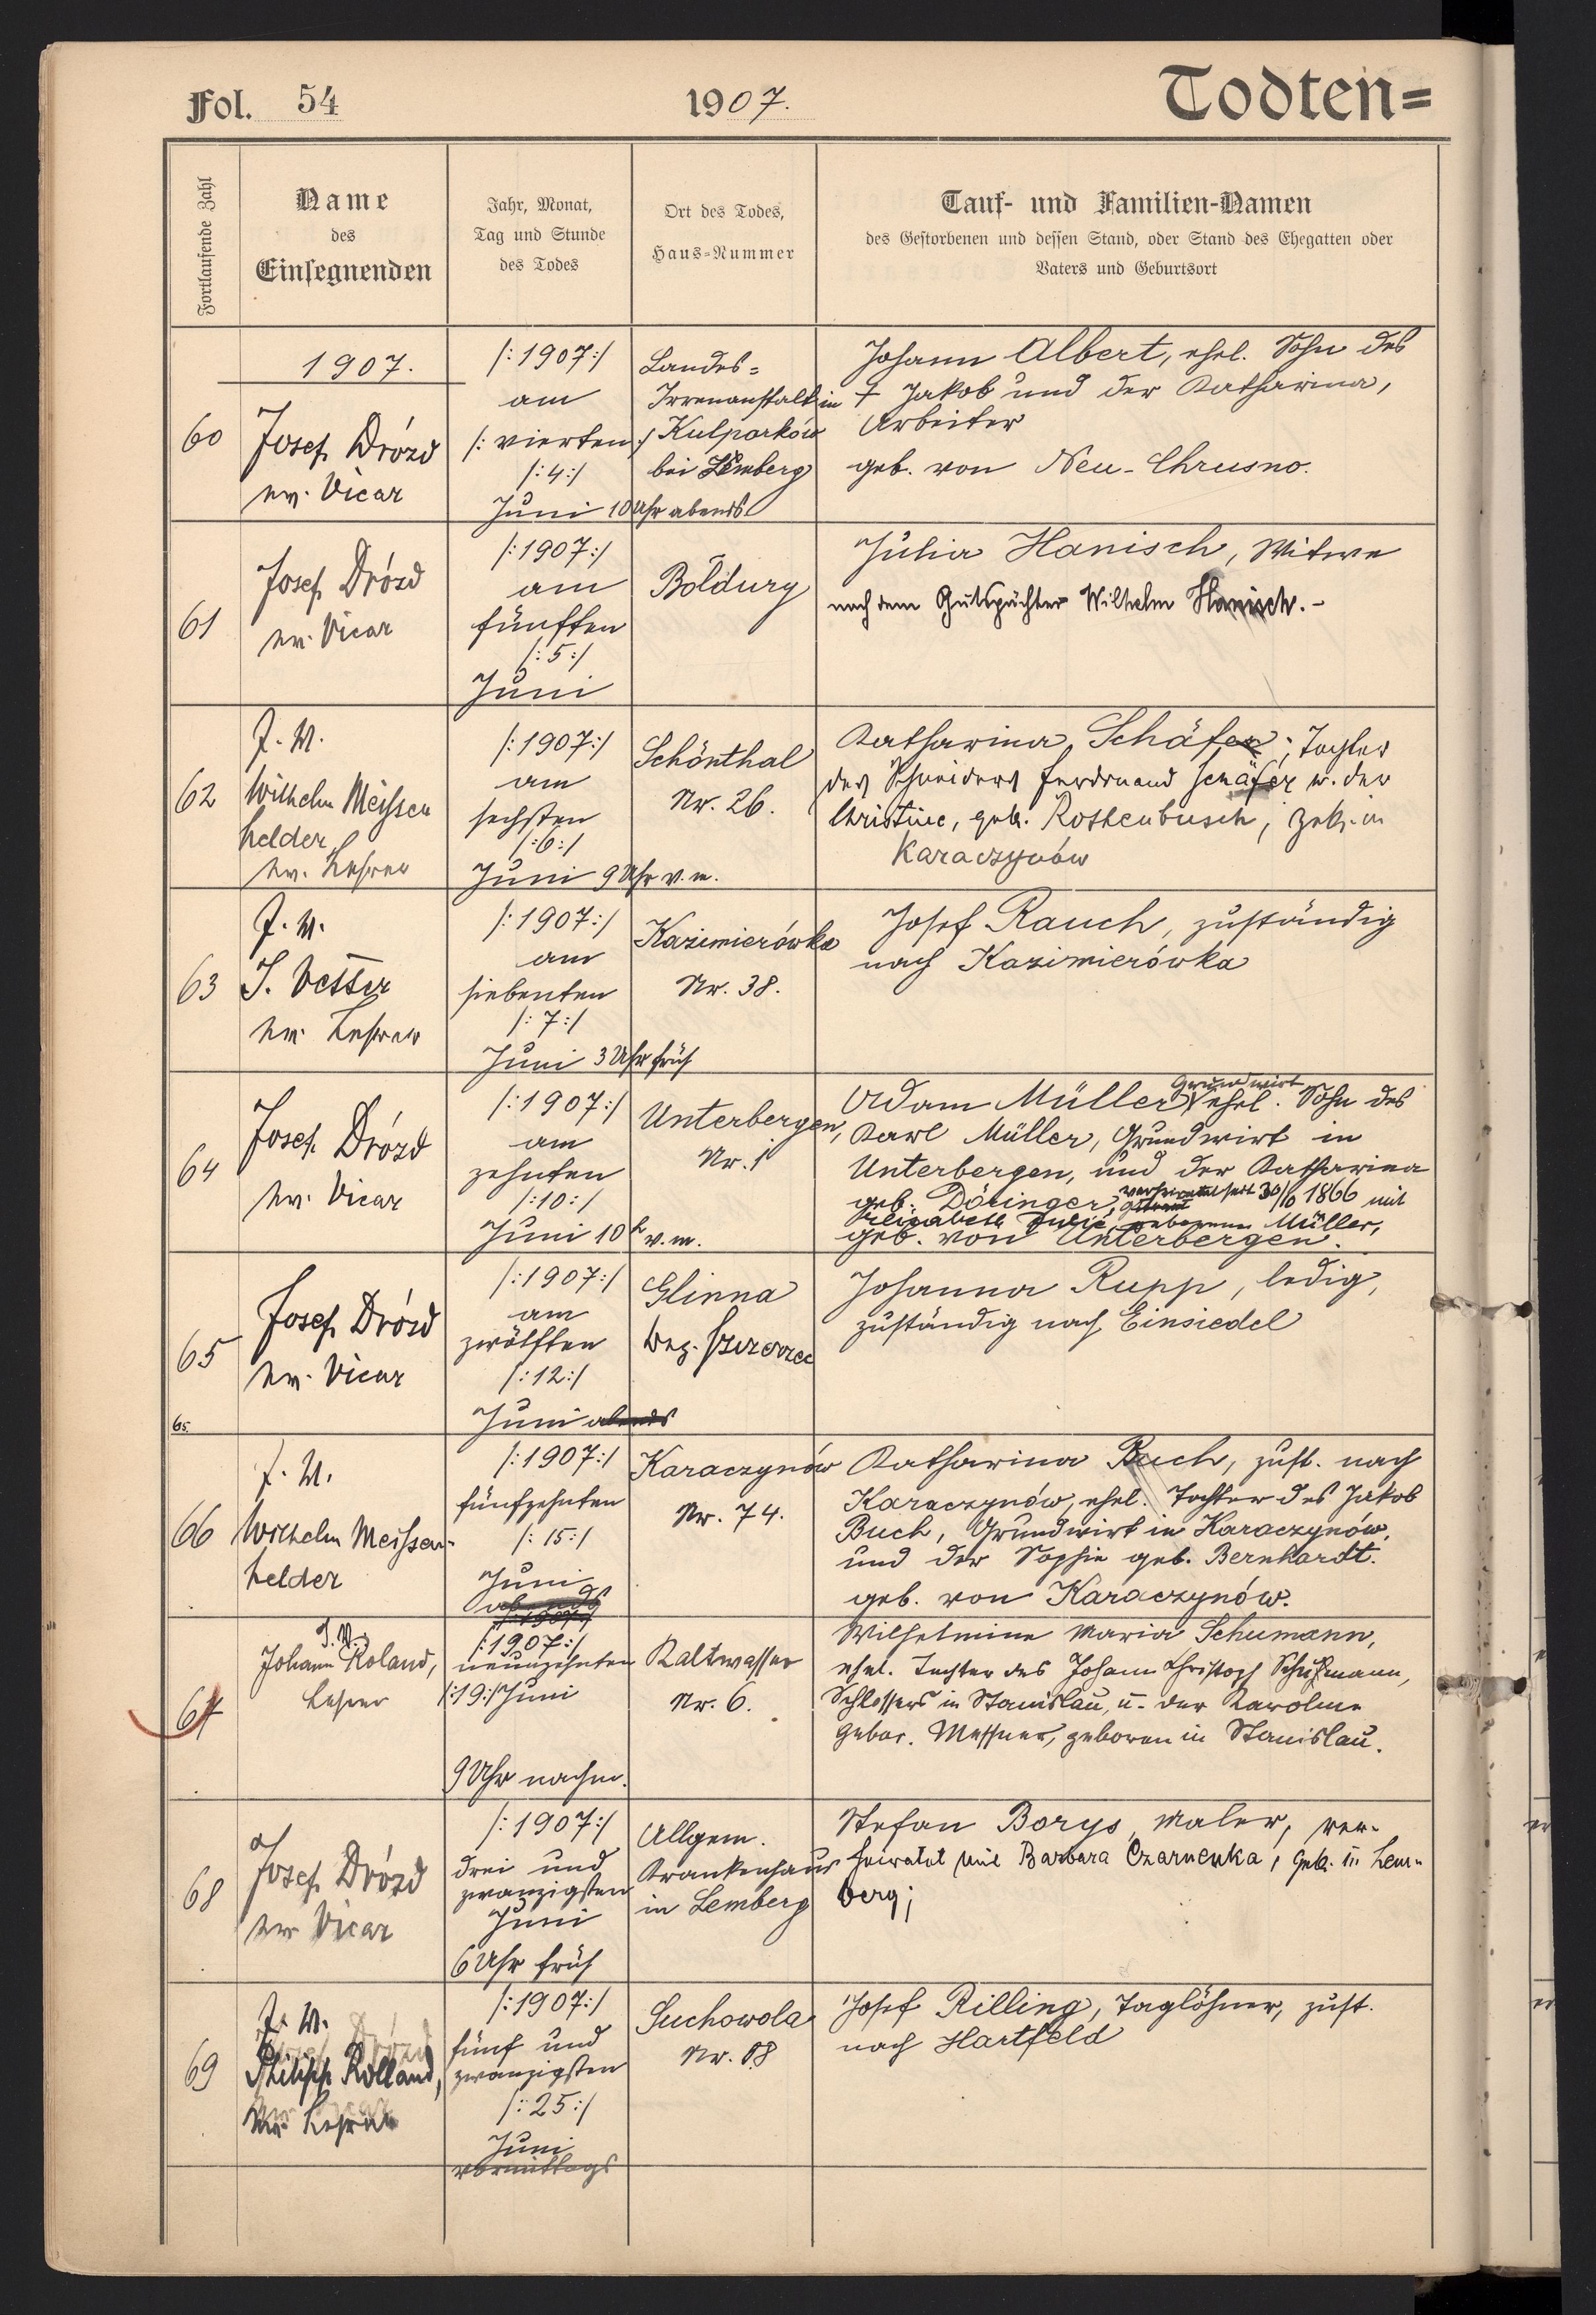 Fol. 54
1907.
Todten=
Fortlaufende Zahl
Name
des
Einsegnenden
Jahr, Monat,
Tag und Stunde
des Todes
Ort des Todes,
Haus-Nummer
Tauf- und Familien-Namen
des Gestorbenen und dessen Stand, oder Stand des Ehegatten oder
Vaters und Geburtsort
1907.
60
Josef Drózd
ev. Vicar
/:1907:/
am
/: vierten :/
/:4:/
Juni 10 Uhr abends
Landes=
Irrenanstalt in
Kulparków
bei Lemberg
Johann Albert, ehel. Sohn des
† Jakob und der Katharina,
Arbeiter
geb. von Neu-Chrusno.
61
Josef Drózd
ev. Vicar
/:1907:/
am
fünften
/:5:/
Juni
Boldury
Julia Hanisch, Witwe
nach dem Gutspächter Wilhelm Hanisch.-
62
I. V.
Wilhelm Meissen
helder
ev. Lehrer
/:1907:/
am
sechsten
/:6:/
Juni 9 Uhr v. m.
Schönthal
Nr. 26.
Katharina Schäfer; Tochter
des Schneiders Ferdinand Schäfer u. der
Christine, geb. Rothenbusch; geb. in
Karaczynów
63
I. V.
J. Vetter
ev. Lehrer
/:1907:/
am
siebenten
/:7:/
Juni 3 Uhr früh
Kazimierówka
Nr. 38.
Josef Rauch, zuständig
nach Kazimierówka
64
Josef Drózd
ev. Vicar
/:1907:/
am
zehnten
/:10:/
Juni 10 h v. m.
Unterbergen,
Nr. 1
Grundwirt
Adam Müller, ehel. Sohn des
Karl Müller, Grundwirt in
Unterbergen, und der Katharina
geb. Döringer, verheiratet seit 30/10 1866 mit
Elisabeth Julie, geborenen Müller,
geb. von Unterbergen.
65
65.
Josef Drózd
ev. Vicar
/:1907:/
am
zwölften
/:12:/
Juni abends
Glinna
bez. Szczerzec
Johanna Rupp, ledig,
zuständig nach Einsiedel
66
I. V.
Wilhelm Meissen-
helder
/:1907:/
fünfzehnten
/:15:/
Juni
abends
Karaczynów
Nr. 74.
Katharina Buch, zust. nach
Karaczynów, ehel. Tochter des Jakob
Buch, Grundwirt in Karaczynów,
und der Sophie geb. Bernhardt.
geb. von Karaczynów.
67
I. V.
Johann Roland,
Lehrer
/:1907:/
neunzehnten
/:19:/ Juni
9 Uhr nachm.
Kaltwasser
Nr. 6.
Wilhelmine Maria Schumann,
ehel. Tochter des Johann Christoph Schuhmann,
Schlossers in Stanislau, u. der Karoline
gebor. Messner, geboren in Stanislau.
68
Josef Drózd
ev. Vicar
/:1907:/
drei und
zwanzigsten
Juni
6 Uhr früh
Allgem.
Krankenhaus
in Lemberg
Stefan Borys, Maler, ver-
heiratet mit Barbara Czarnenka, geb. in Lem-
berg;
69
I. V.
Philipp Rolland,
ev. Lehrer
/:1907:/
fünf und
zwanzigsten
/:25:/
Juni
vormittags
Suchowola
Nr. 88
Josef Rilling, Taglöhner, zust.
nach Hartfeld